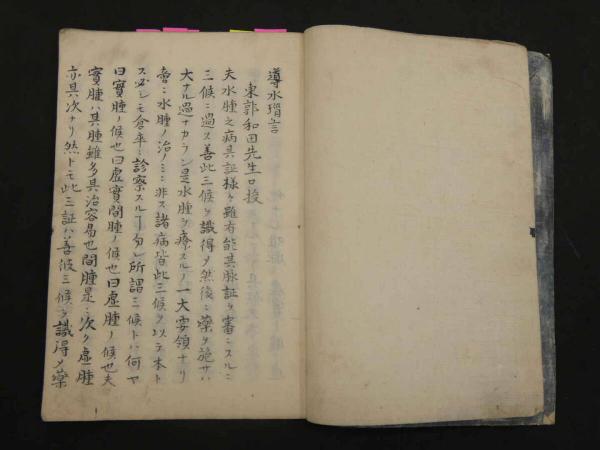 導水瑣言
東郭和田先生口授
夫水腫之病其証様々雖有能其脉証ヲ審ニスルニ
三候ニ過ス善此三候ヲ識得メ然後ニ藥ヲ施サハ
大ナル過ナカラン是水腫ヲ療スルノ一大要領ナリ
啻ニ水腫ノ治ノミニ非ス諸病皆此三候ヲ以テ本ト
ス必シモ倉卒ニ診察スルヿ勿レ所謂三候トハ何ヤ
曰實腫ノ候也曰虚實間腫ノ候也曰虚腫ノ候也夫
實腫ハ其腫雖多其治容易也間腫是ニ次ク虚腫
亦其次ナリ然トモ此三証ハ善彼三候ヲ識得メ藥